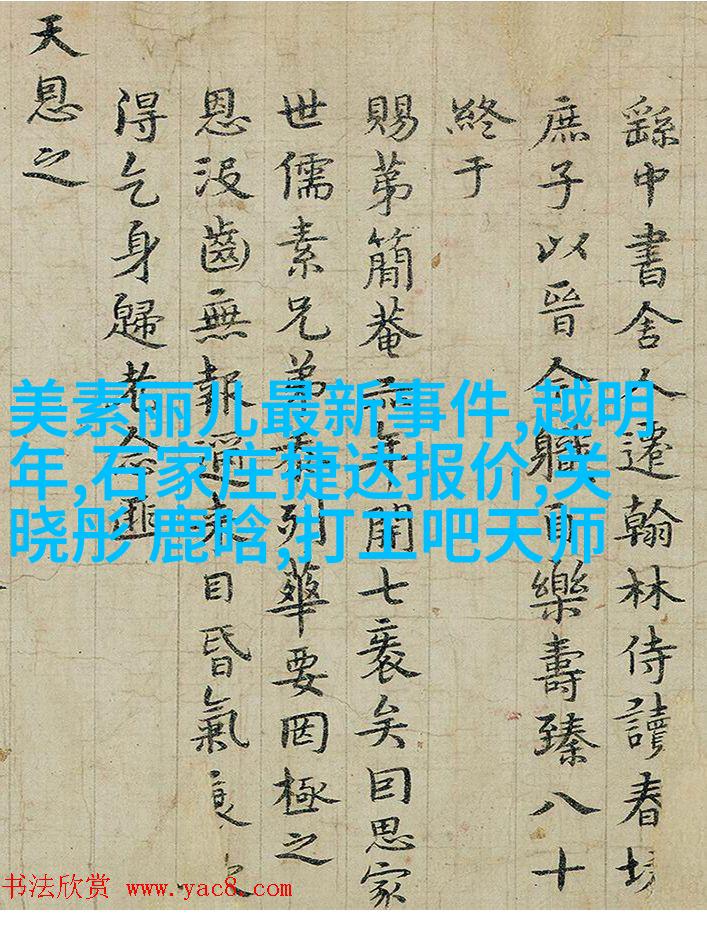 繇中書舍人遷翰林侍讀春坊
庶子以晉今職自樂壽臻八十
終于
賜第簡菴年開七袠矣囙思家
世儒素兄弟列華要罔極之
恩没齒無報邇来目昏氣衰
得乞身歸老
天恩之
美素丽儿最新事件,越明
年,石家庄捷达报价,关
晓彤 鹿晗,打工吧天师
书法欣赏 www.yac8.com